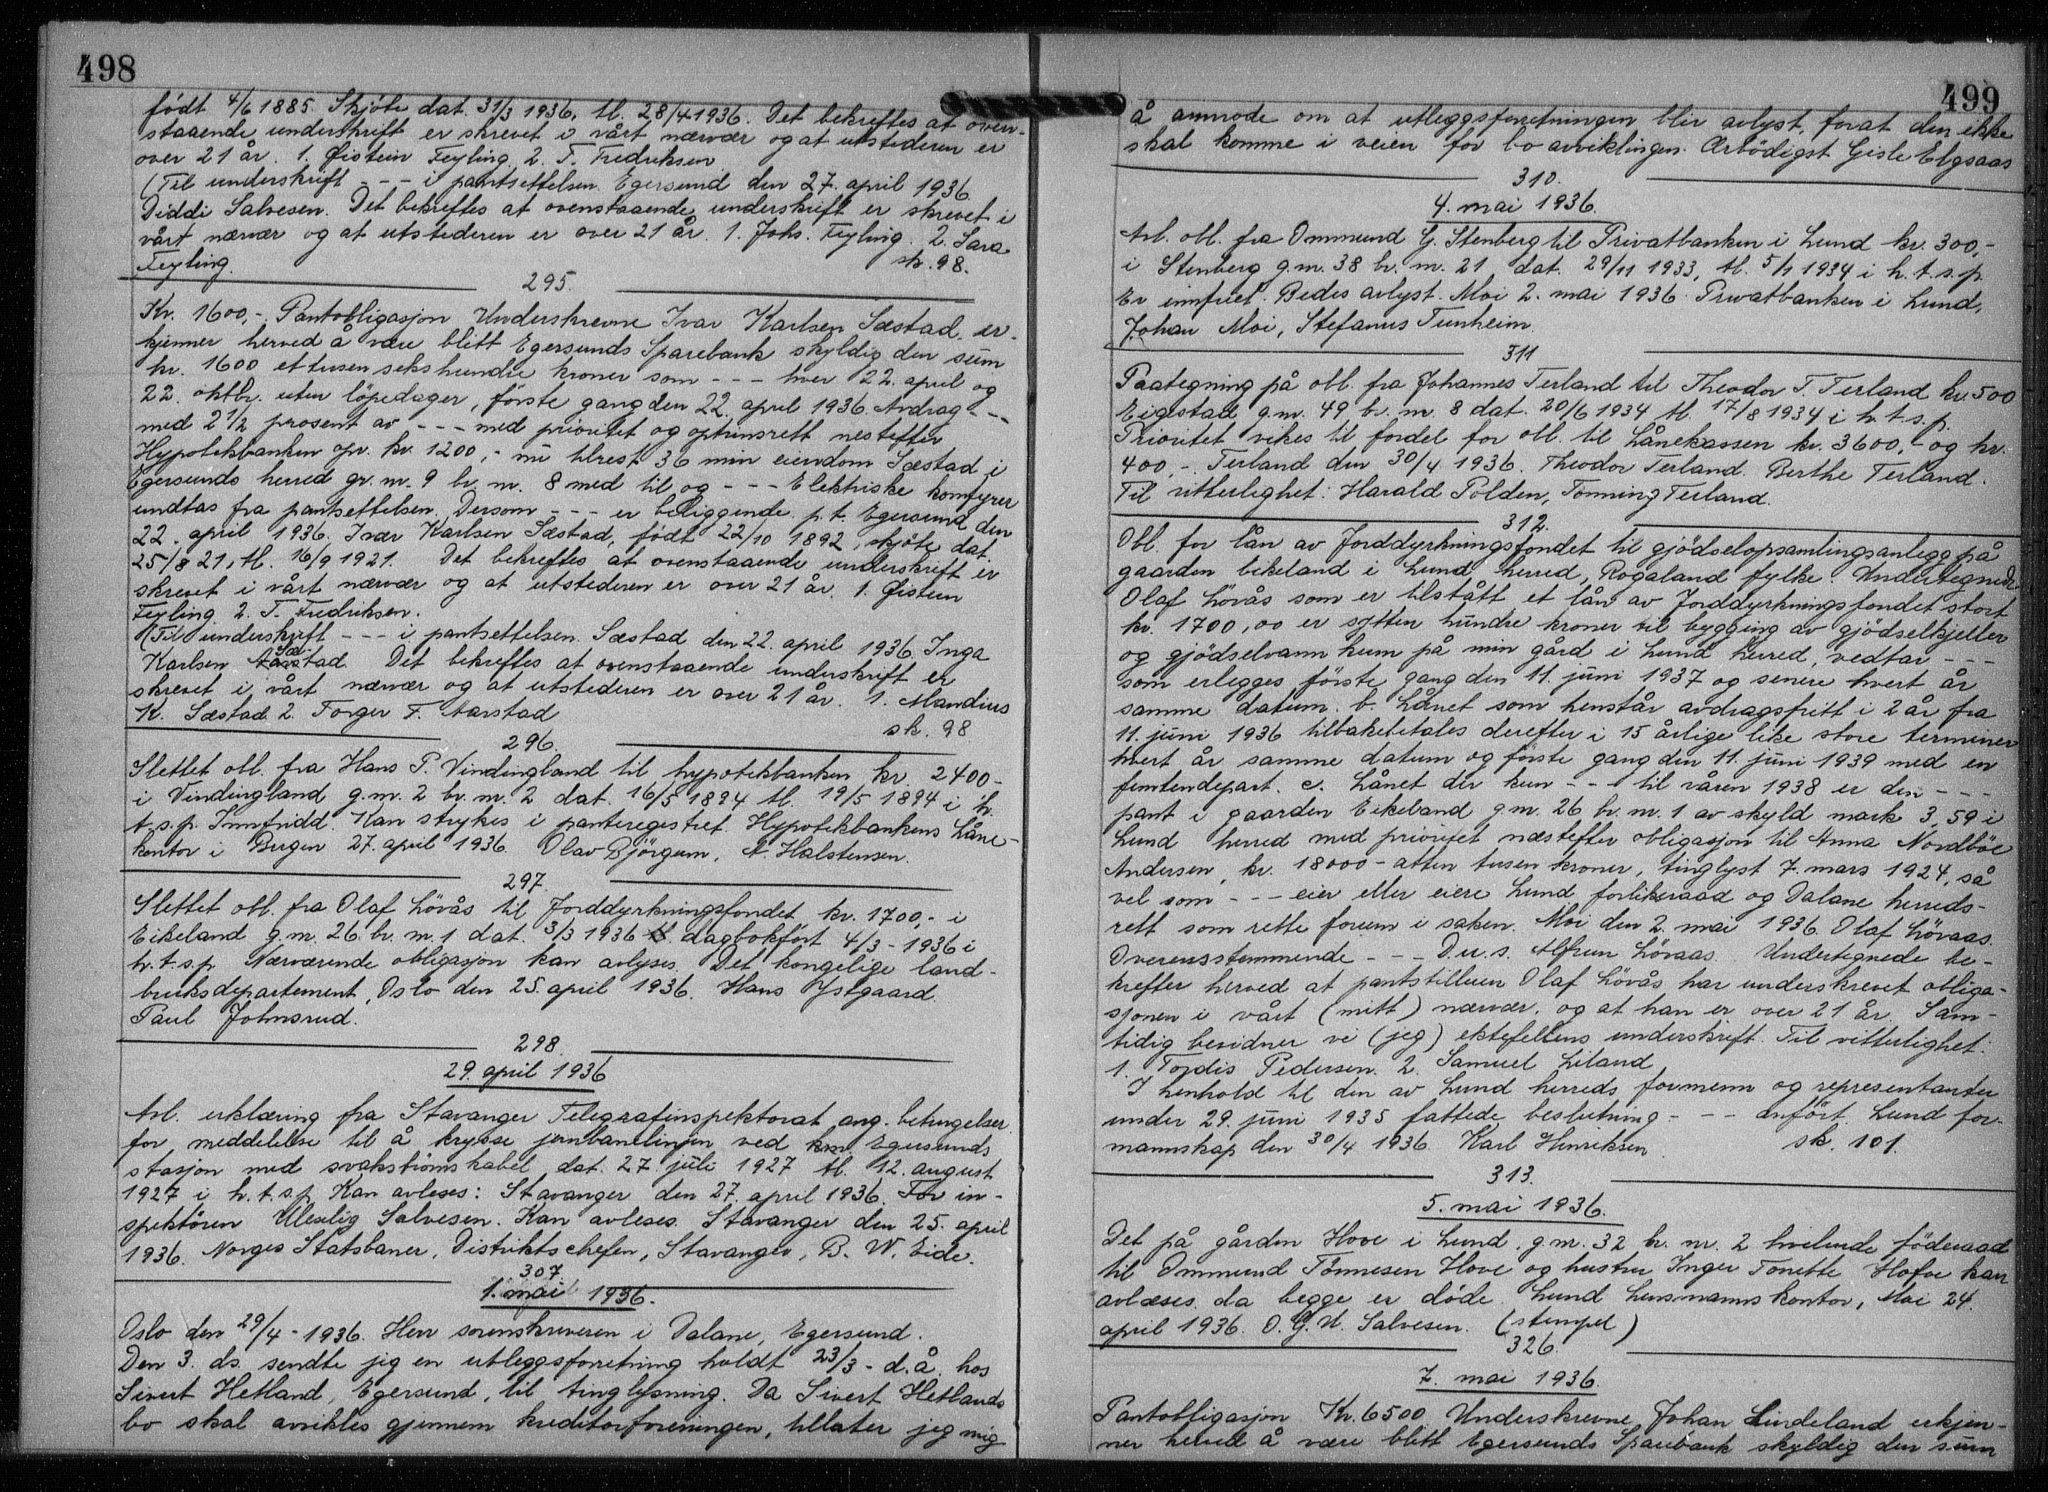 498
født 4/6 1885. Skjöte dat. 31/3 1936, tl. 28/4 1936. Det bekreftes at oven-
staaende underskrift er skrevet i vårt nærvær og at utstederen er
over 21 år. 1. Øistein Feyling. 2. T. Fredriksen
(Til underskrift - - - i pantsettelsen. Egersund den 27. april 1936
Diddi Salvesen. Det bekreftes at ovenstaaende underskrift er skrevet i
vårt nærvær og at utstederen er over 21 år. 1. Johs. Feyling. 2. Sara
Feyling. sk. 98.
295.
Kr. 1600,- Pantobligasjon Underskrevne Ivar Karlsen Sæstad er-
kjenner herved å være blitt Egersunds Sparebank skyldig den sum
kr. 1600 ettusensekshundre kroner som - - - hver 22. april og
22. oktbr. uten löpedager, förste gang den 22. april 1936. Avdrag - - -
med 2 1/2 prosent av - - - med prioritet og optrinsrett nestefter
Hypotekbanken opr. kr. 1200,- nu tilrest 36 min eiendom Sæstad i
Egersunds herred gr. nr. 9 br. nr. 8 med til og - - - Elektriske komfyrer
undtas fra pantsettelsen. Dersom - - - er beliggende. p.t. Egersund den
22. april 1936. Ivar Karlsen Sæstad, född 22/10 1892, skjöte dat.
25/8 21, tl. 16/9 1921. Det bekreftes at ovenstaaende underskrift er
skrevet i vårt nærvær og at utstederen er over 21 år. 1. Øistein
Feyling. 2. T. Fredriksen.
(Til underskrift - - - i pantsettelsen. Sæstad den 22. april 1936. Inga
Karlsen Sæstad. Det bekreftes at ovenstaaende underskrift er
skrevet i vårt nærvær og at utstederen er over 21 år. 1. Mandius
K. Sæstad 2. Torger T. Aarstad
sk. 98
296.
Slettet obl. fra Hans P. Vindingland til hypotekbanken kr. 2400-
i Vindingland g.nr. 2 br. nr. 2 dat. 16/5 1894 tl. 19/5 1894 i h.
t.s.p. Innfridd. Kan strykes i panteregistret. Hypotekbankens Låne-
kontor i Bergen 27. april 1936. Olav Björgum, A. Halstensen.
297.
Slettet obl. fra Olaf Lövås til Jorddyrkningsfondet kr. 1700,- i
Eikeland g.nr. 26 br. nr. 1 dat. 3/3 1936 dagbokfört 4/3 - 1936 i
h.t.s.p. Nærværende obligasjon kan avlyses. Det kongelige land-
bruksdepartement, Oslo den 25. april 1936. Hans Ystgaard.
Paul Johnsrud.
298.
29. april 1936
Avl. erklæring fra Stavanger Telegrafinspektorat ang. betingelser
for meddelelse til å krysse jernbanelinjen ved km Egersunds
stasjon med svakströmskabel dat. 27. juli 1927 tl. 12. august
1927 i h.t.s.p. Kan avleses: Stavanger den 27. april 1936. For in-
spektören Salvesen. Kan avleses. Stavanger den 25. april
1936. Norges Statsbaner, Distriktschefen, Stavanger, B. W. Eide.
307
1. mai 1936.
Oslo den 29/4 - 1936. Herr sorenskriveren i Dalane, Egersund.
Den 3. ds. sendte jeg en utleggsforretning holdt 23/3 - d.å. hos
Sivert Hetland, Egersund, til tinglysning. Da Sivert Hetlands
bo skal avvikles gjennem kreditorforeningen, tillater jeg mig
499
å anmode om at utleggsforretningen blir avlyst, forat den ikke
skal komme i veien for bo avviklingen. Ærbödigst Gisle Elgsaas
310.
4. mai 1936.
Avl. obl. fra Ommund G. Stenberg til Privatbanken i Lund kr. 300,-
i Stenberg g.nr. 38 br. nr. 21 dat. 29/11 1933, tl. 5/1 1934 i h.t.s.p.
Er innfriet. Bedes avlyst. Moi 2. mai 1936. Privatbanken i Lund,
Johan Moi, Stefanus Tunheim.
311
Paategning på obl. fra Johannes Terland til Theodor T. Terland kr. 500
Eigestad g.nr. 49 br. nr. 8 dat. 20/6 1934 tl. 17/8 1934 i h.t.s.p.
Prioritet vikes til fordel for obl. til Lånekassen kr. 3600,- og kr.
400,-. Terland den 30/4 1936. Theodor Terland. Berthe Terland.
Til vitterlighet: Harald Polden, Tönning Terland.
312.
Obl. for lån av Jorddyrkningsfondet til gjödselopsamlingsanlegg på
gaarden Eikeland i Lund herred, Rogaland fylke. Undertegnede
Olaf Lövås som er tilstått et lån av Jorddyrkningsfondet stort
kr. 1700,00 er sytten hundre kroner til bygging av gjödselkjeller
og gjödselvannkum på min gård i Lund herred, vedtar - - -
som erlegges förste gang den 11. juni 1937 og senere hvert år
samme datum. b. Lånet som henstår avdragsfritt i 2 år fra
11. juni 1936 tilbakebetales derefter i 15 årlige like store terminer
hvert år samme datum og förste gang den 11. juni 1939 med en
femtendepart. c. Lånet der kun - - - til våren 1938 er den - - -
pant i gaarden Eikeland g.nr. 26 br. nr. 1 av skyld mark 3,59 i
Lund herred med prioritet næstefter obligasjon til Anna Nordböe
Andersen, kr. 18000- atten tusen kroner, tinglyst 7. mars 1924, så
vel som - - - eier eller eiere Lund forlikeraad og Dalane herreds-
rett som rette forum i saken. Moi den 2. mai 1936. Olaf Lövaas.
Overensstemmende - - - D.u.s. Alfrun Lövaas. Undertegnede be-
krefter herved at pantstilleren Olaf Lövås har underskrevet obliga-
sjonen i vårt (mitt) nærvær, og at han er over 21 år. Sam-
tidig bevidner vi (jeg) ektefellens underskrift. Til vitterlighet:
1. Tordis Pedersen. 2. Samuel Liland
I henhold til den av Lund herreds formenn og representanter
under 29. juni 1935 fattede beslutning - - - anfört. Lund for-
mannskap den 30/4 1936. Karl Henriksen. sk. 101.
313.
5. mai 1936.
Det på gården Hove i Lund, g.nr. 32 br. nr. 2 hvilende föderaad
til Ommund Tönnesen Hove og hustru Inger Tonette Hofve kan
avlæses da begge er döde. Lund Lensmannskontor, Moi 24.
april 1936. O. G. U. Salvesen. (stempel)
326.
7. mai 1936.
Pantobligasjon Kr. 6500. Underskrevne Johan Lindeland erkjen-
ner herved å være blitt Egersunds Sparebank skyldig den sum